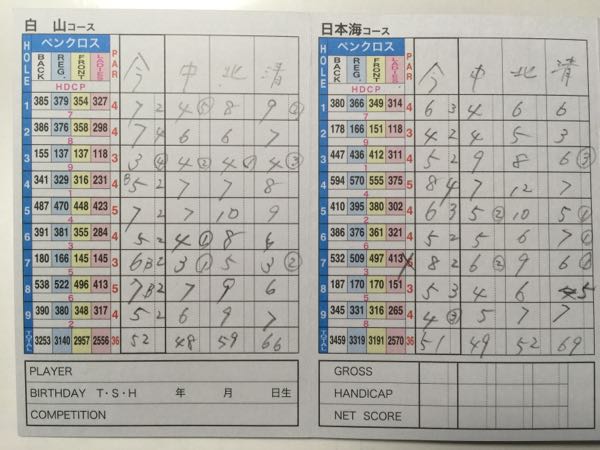 白 山コース
HOLE ペンクロス PAR 今 中 北 清
BACK REG. FRONT LADIES
HDCP
1 385 379 354 327 4 7 2 4 ⑤ 8 9
7
2 386 376 358 298 4 7 4 6 6 7
3 155 137 137 118 3 3 ④ 4 ② 4 4 ③
9
4 341 329 316 231 4 5 2 7 7 8
5 487 470 448 423 5 7 2 7 10 9
4
6 391 381 355 284 4 5 2 4 ① 8
3
7 180 166 145 145 3 6 B2 3 ① 5 3 ②
8 538 522 496 413 5 7 B2 7 9 6
9 390 380 348 317 4 5 2 6 9 7
2
TOTAL 3253 3140 2957 2556 36 52 48 59 66
PLAYER
BIRTHDAY T・S・H 年 月 日生
COMPETITION
日本海コース
HOLE ペンクロス PAR 今 中 北 清
BACK REG. FRONT LADIES
HDCP
1 380 366 349 314 4 6 3 4 6 6
7
2 178 166 151 118 3 4 2 4 5 3
3 447 436 412 311 4 5 2 9 8 6 ③
4 594 570 555 375 5 8 4 7 12 7
5 410 395 380 302 4 6 3 5 ② 10 5
2
6 386 376 361 321 4 5 2 5 6 7 ①
7 532 509 497 413 8 2 6 ② 9 6
8 188 170 170 151 3 5 3 4 6 5
9 345 331 316 265 4 4 ③ 5 7 7
TOTAL 3459 3319 3191 2570 36 51 49 52 69
GROSS
HANDICAP
NET SCORE